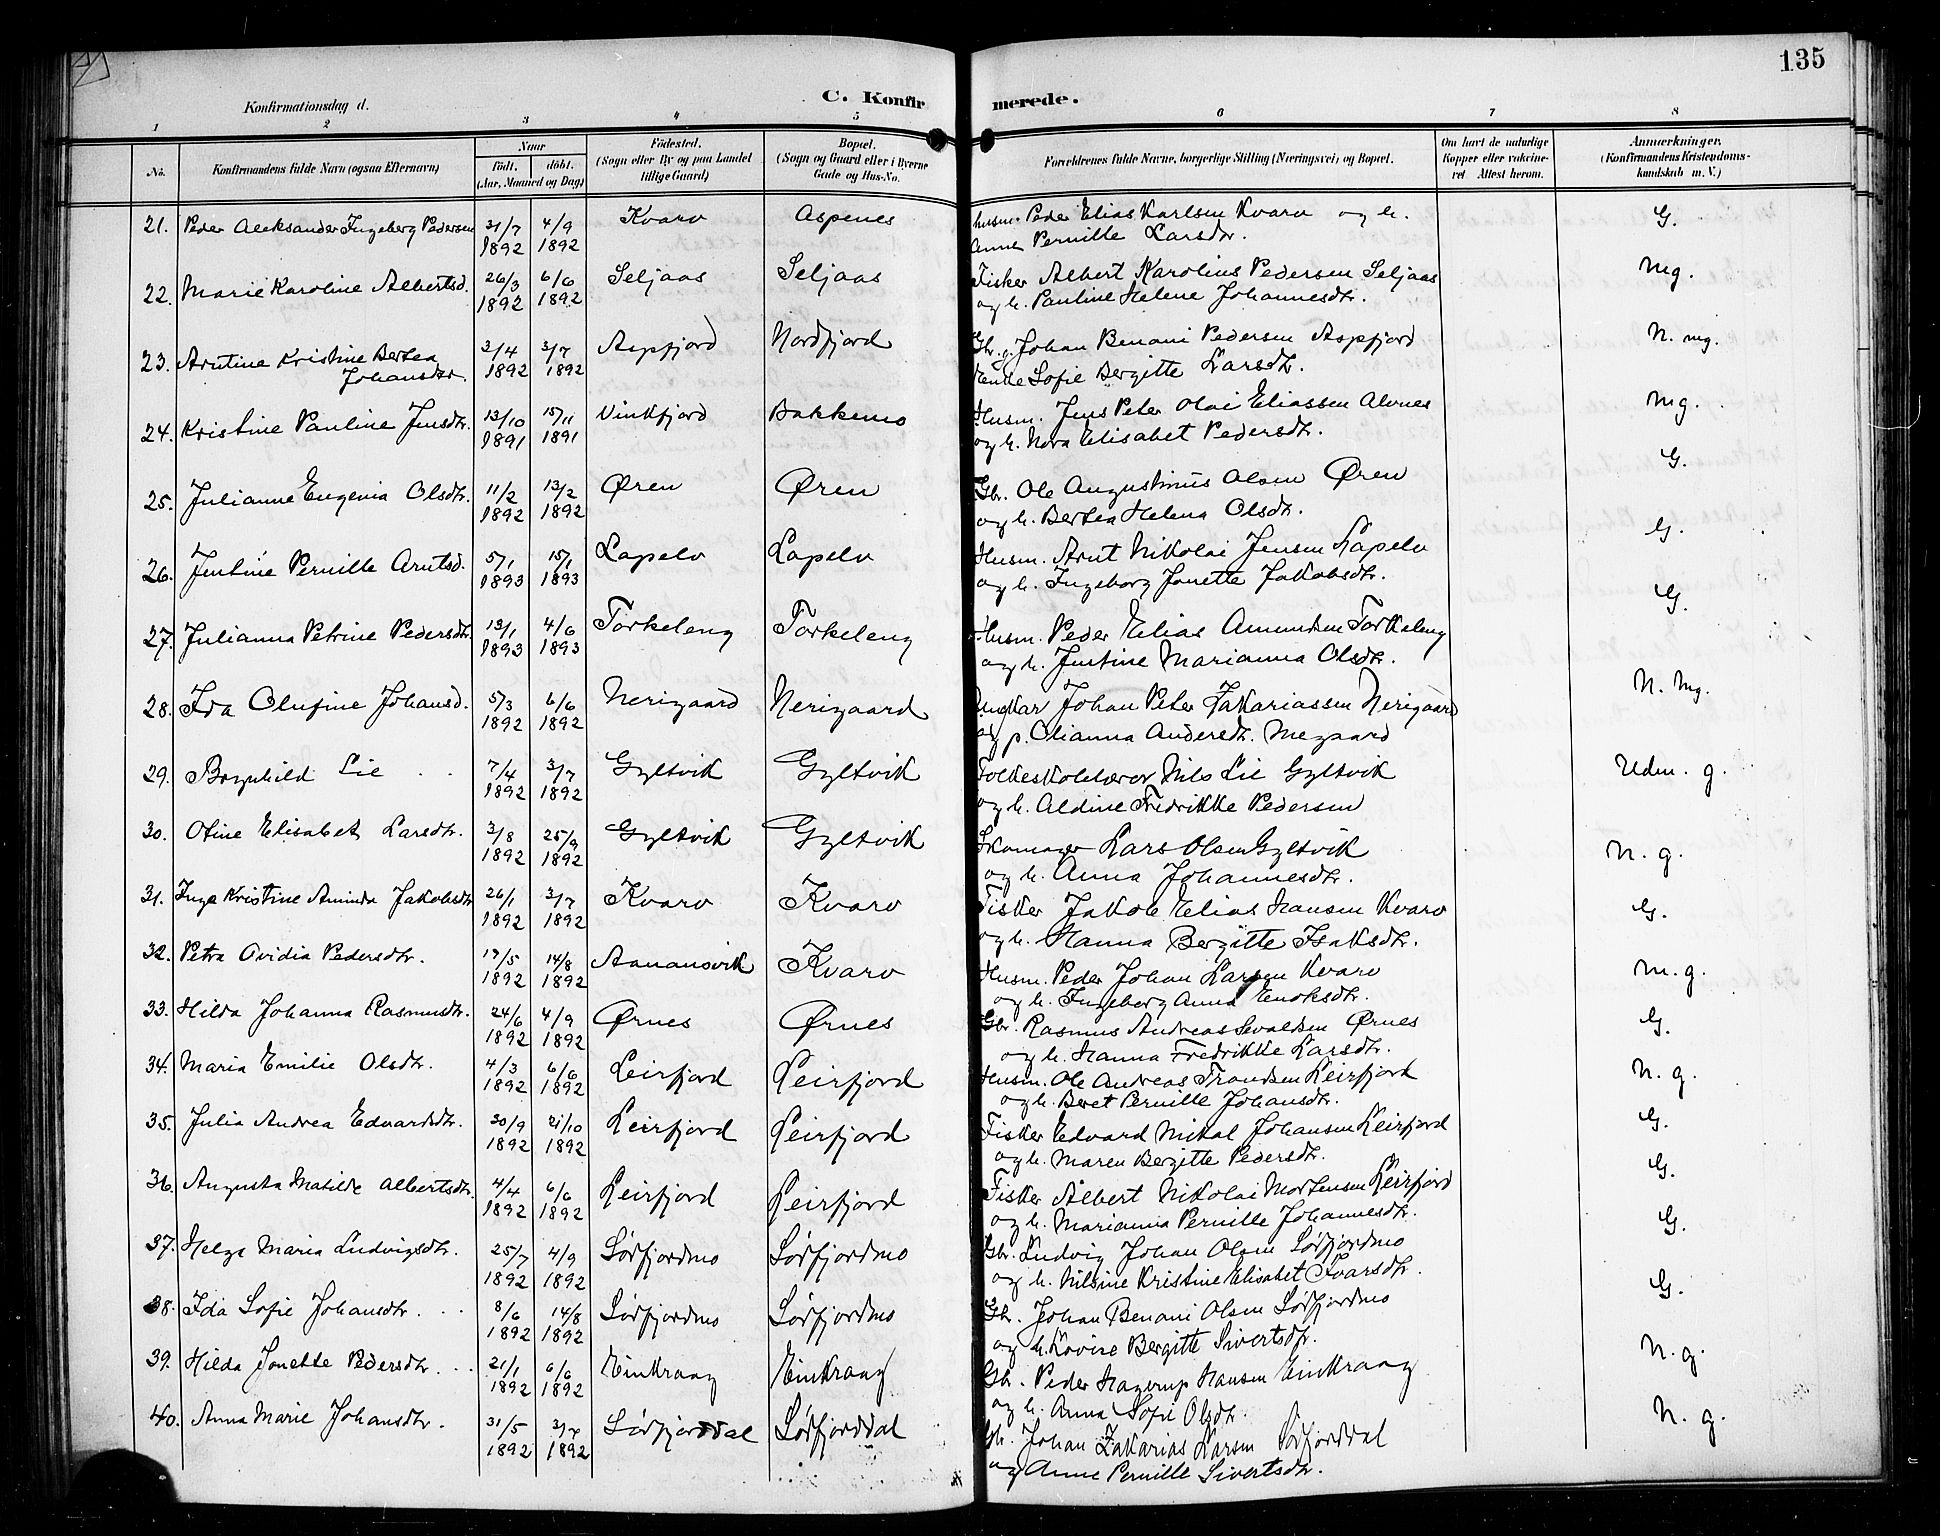 135
Konfirmationsdag d.
C. Konfir merede.
1 2 3 4 5 6 7 8
No.
Konfirmandens fulde Navn (ogsaa Efternavn)
Naar
født. døbt.
(Aar, Maaned og Dag)
Födested.
(Sogn eller By og paa Landet
tillige Gaard)
Bopæl.
(Sogn og Gaard eller i Byerne
Gade og Hus-No.
Forældrenes fulde Navne, borgerlige Stilling (Næringsvei) og Bopæl.
Om havt de naturlige
Kopper eller vakcine-
ret Attest herom.
Anmærkninger.
(Konfirmandens Kristendoms-
kundskab m. V.)
21. Peder Aleksander Ingeberg Pedersen 31/7 4/9 Kvarv Aspenes Husm. Peder Elias Karlsen Kvarv og h. G.
1892 1892 Anne Pernille Larsdtr.
22. Marie Karoline Albertsd. 26/3 6/6 Seljaas Seljaas Fisker Albert Karolius Pedersen Seljaas Mg.
1892 1892 og h. Pauline Helene Johannesdtr.
23. Arntine Kristine Bertea 3/4 3/7 Aspfjord Nordfjord Gbr. g. Johan Benoni Pedersen Aspfjord N. mg.
Johansdtr. 1892 1892 Enke Sofie Bergitte Larsdtr.
24. Kristine Pauline Jensdtr. 13/10 15/11 Vinkfjord Bakkemo Husm. Jens Peter Olai Eliassen Alvnes Mg.
1891 1891 og h. Nora Elisabet Pedersdtr.
25. Julianne Eugenia Olsdtr. 11/2 13/2 Øren Øren Gbr. Ole Augustinus Olsen Øren G.
1892 1892 og h. Bertea Helena Olsdtr.
26. Jentine Pernille Arntsd. 5/1 15/1 Lapelv Lapelv Husm. Arnt Nikolai Jensen Lapelv G.
1893 1893 og h. Ingeborg Jonette Jakobsdtr.
27. Julianna Petrine Pedersdtr. 13/1 4/6 Torkeleng Torkeleng Husm. Peder Elias Amundsen Torkeleng G.
1893 1893 og h. Jentine Marianna Olsdtr.
28. Ida Olufine Johansd. 5/3 6/6 Nerigaard Nerigaard Ungkar Johan Peter Zakariassen Nerigaard N. Mg.
1892 1892 og p. Olianna Andersdtr.
29. Brynhild Lie 7/4 3/7 Gyltvik Gyltvik Folkeskolelærer Nils Lie Gyltvik Udm. g.
1892 1892 og h. Aldine Fredrikke Pedersen
30. Otine Elisabet Larsdtr. 3/8 25/9 Gyltvik Gyltvik Skomager Lars Olsen Gyltvik N. g.
1892 1892 og h. Anna Johannesdtr.
31. Inga Kristine Aminda Jakobsdtr 26/1 3/7 Kvarv Kvarv Fisker Jakob Elias Hansen Kvarv G.
1892 1892 og h. Hanna Bergitte Isaksdtr.
32. Petra Ovidia Pedersdtr. 19/5 14/8 Aanansvik Kvarv Husm. Peder Johan Larsen Kvarv M. g.
1892 1892 og h. Ingeborg Anna Enoksdtr.
33. Hilda Johanna Rasmusdtr. 24/6 4/9 Ørnes Ørnes Gbr. Rasmus Andreas Sevaldsen Ørnes G.
1892 1892 og h. Hanna Fredrikke Larsdtr.
34. Maria Emilie Olsdtr. 4/3 6/6 Leirfjord Leirfjord Husm. Ole Andreas Trondsen Leirfjord N. g.
1892 1892 og h. Beret Pernille Johansdtr.
35. Julia Andrea Edvardsdtr. 20/9 21/10 Leirfjord Leirfjord Fisker Edvard Mikal Johansen Leirfjord G.
1892 1892 og h. Maren Bergitte Pedersdtr.
36. Augusta Matilde Albertsdtr. 4/4 6/6 Leirfjord Leirfjord Fisker Albert Nikolai Mortensen Leirfjord G.
1892 1892 og h. Marianna Pernille Johannesdtr.
37. Helga Maria Ludvigsdtr. 25/7 4/9 Sørfjordmo Sørfjordmo Gbr. Ludvig Johan Olsen Sørfjordmo G.
1892 1892 og h. Nilsine Kristine Elisabet Ivarsdtr.
38. Ida Sofie Johansdtr. 8/6 14/8 Sørfjordmo Sørfjordmo Gbr. Johan Benoni Olsen Sørfjordmo G.
1892 1892 og h. Lovise Bergitte Sivertsdtr.
39. Hilda Jonette Pedersdtr. 21/1 6/6 Einkraag Einkraag Gbr. Peder Hagerup Hansen Einkraag N. g.
1892 1892 og h. Anna Sofie Olsdtr.
40. Anna Marie Johansdtr. 31/5 3/7 Sørfjorddal Sørfjorddal Gbr. Johan Zakarias Larsen Sørfjorddal N. g.
1892 1892 og Anne Pernille Sivertsdtr.